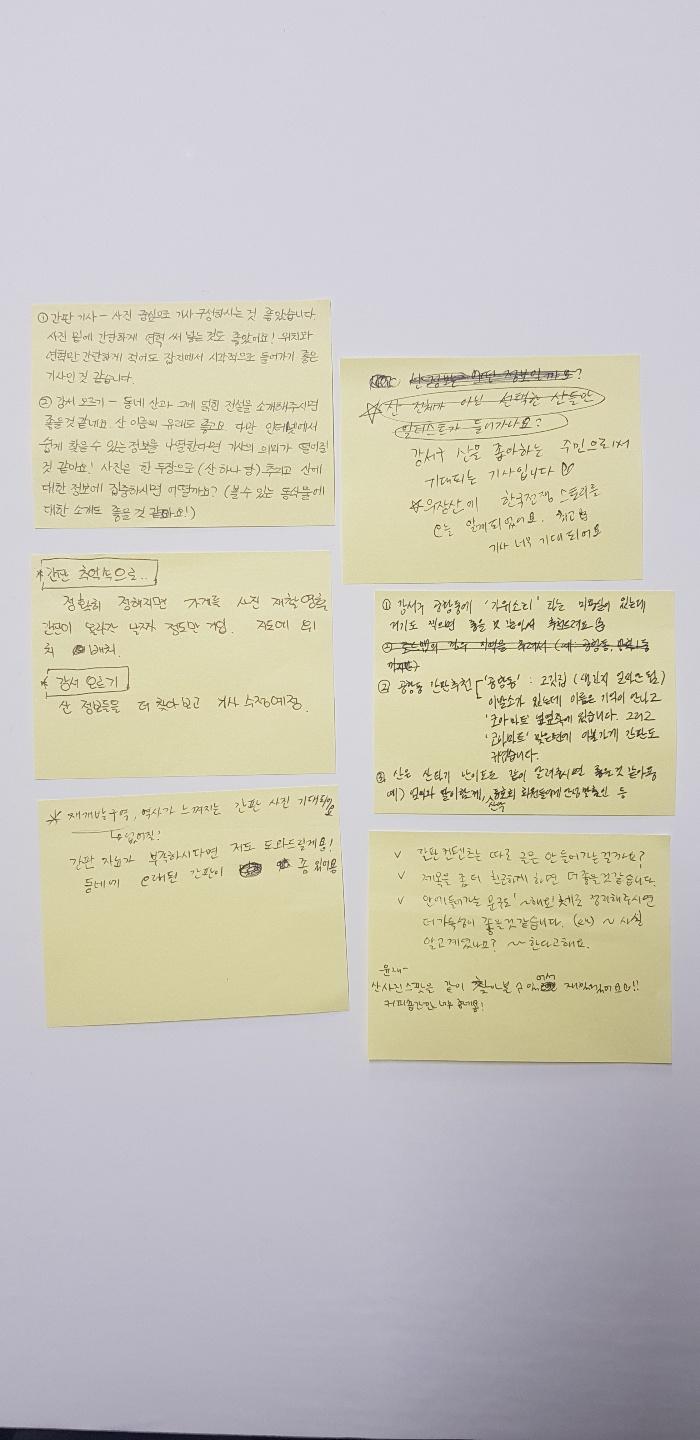 ① 간판 기사 - 사진 중심으로 기사 구성하시는 것 좋았습니다
사진 밑에 간단하게 연혁 써 넣는 것도 좋았어요! 위치와
연혁만 간단하게 적어도 잡지에서 시각적으로 들어가기 좋은
기사인 것 같습니다.
② 강서 오르기 - 동네 산과 그에 얽힌 전설을 소개해주시면
좋을것 같네요 산 이름의 유래도 좋고요 다만 인터넷에서
쉽게 찾을 수 있는 정보를 나열한다면 기사의 의미가 떨어질
것 같아요! 사진은 한 두장으로 (산 하나 당) 추리고 산에
대한 정보에 집중하시면 어떨까요? (볼 수 있는 동식물에
대한 소개도 좋을 것 같아요!)
*간판 추억속으로..
정확히 정해지면 가게를 사진 재촬영
간판이 올라간 날짜 정도만 기입. 지도에 위
치 배치.
*강서 오르기
산 정보들을 더 찾아보고 기사 수정예정.
* 재개발구역, 역사가 느껴지는 간판 사진 기대돼요
없어질!
간판 자료가 부족하시다면 저도 도와드릴게용!
동네에 오래된 간판이 좀 있어용
☆산 전체가 아닌 선택한 산들만
일러스트가 들어가나요?
강서구 산을 좋아하는 주민으로서
기대되는 기사입니다
☆우장산에 한국전쟁 스토리를
오늘 알게되었어요. 최고
기사 너무 기대되어요
① 강서구 공항동에 '가위소리' 라는 미용실이 있는데
거기도 찍으면 좋을 것 같아서 추천드려요
② 공항동 간판추천 '공항동' : 고깃집 (생긴지 얼마안됨)
이발소가 있는데 이름은 기억이 안나고
'코아마트' 옆쪽에 있습니다. 그리고
'코아마트' 맞은편에 이불가게 간판도
귀엽습니다.
③ 산은 산타기 난이도도 같이 알려주시면 좋을것 같아용
예) 엄마와 딸이 함께, 산악동호회 회원들에게 안성맞춤인 등
v 간판 컨텐츠는 따로 글은 안 들어가는 걸까요?
v 제목을 좀 더 친근하게 하면 더 좋을것같습니다.
v 안에 들어가는 문구도 '~해요'체로 정리해주시면
더 가독성이 좋을것같습니다. (ex) ~ 사실
알고계셨나요? ~ 한다고해요.
-윤재-
산 사진 스팟을 같이 찾아볼 수 있어서 재밌었어요!!
커피공간만 너무